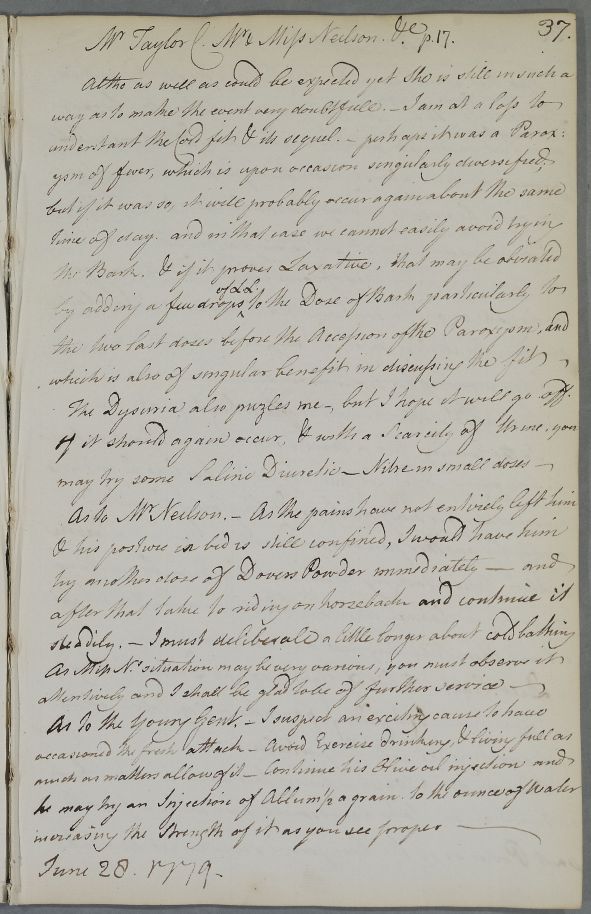 37.
Mr Taylor C. Mr & Miss Neilson. &c. p.17.
Altho as well as could be expected yet she is still in such a
way as to make the event very doubtfull. – I am at a loss to
understant the Cold fit & its sequel. – perhaps it was a Parox:
ysm of fever, which is upon occasion singularly diversified;
but if it was so, it will probably occur again about the same
time of day. and in that case we cannot easily avoid trying
the Bark. & if it proves Laxative, that may be obviated
of LL
by adding a few drops ^ to the Dose of Bark particularly to
the two last doses before the Accession of the Paroxysm, and
which is also of singular benefit in discussing the fit –
The Dysuria also puzles me –, but I hope it will go off.
If it should again occur, & with a Scarcity of Urine, you
may try some Saline Diuretic – Nitre in small doses –
As to Mr Neilson. – As the pains have not entirely left him
& his posture in bed is still confined, I would have him
try another dose of Dovers Powder immediately – and
after that take to riding on horseback and continue it
steadily. – I must deliberate a little longer about cold bathing
As Miss Ns situation may be very various, you must observe it
attentively and I shall be glad to be of further service –
As to the Young Gent. – I suspect an exciting cause to have
occasioned the fresh attack – Avoid Exercise drinking, & living full as
much as matters allow of it – Continue his Olive oil injection and
he may try an Injection of Allum ½ a grain to the ounce of Water
increasing the Strength of it as you see proper –
June 28. 1779.